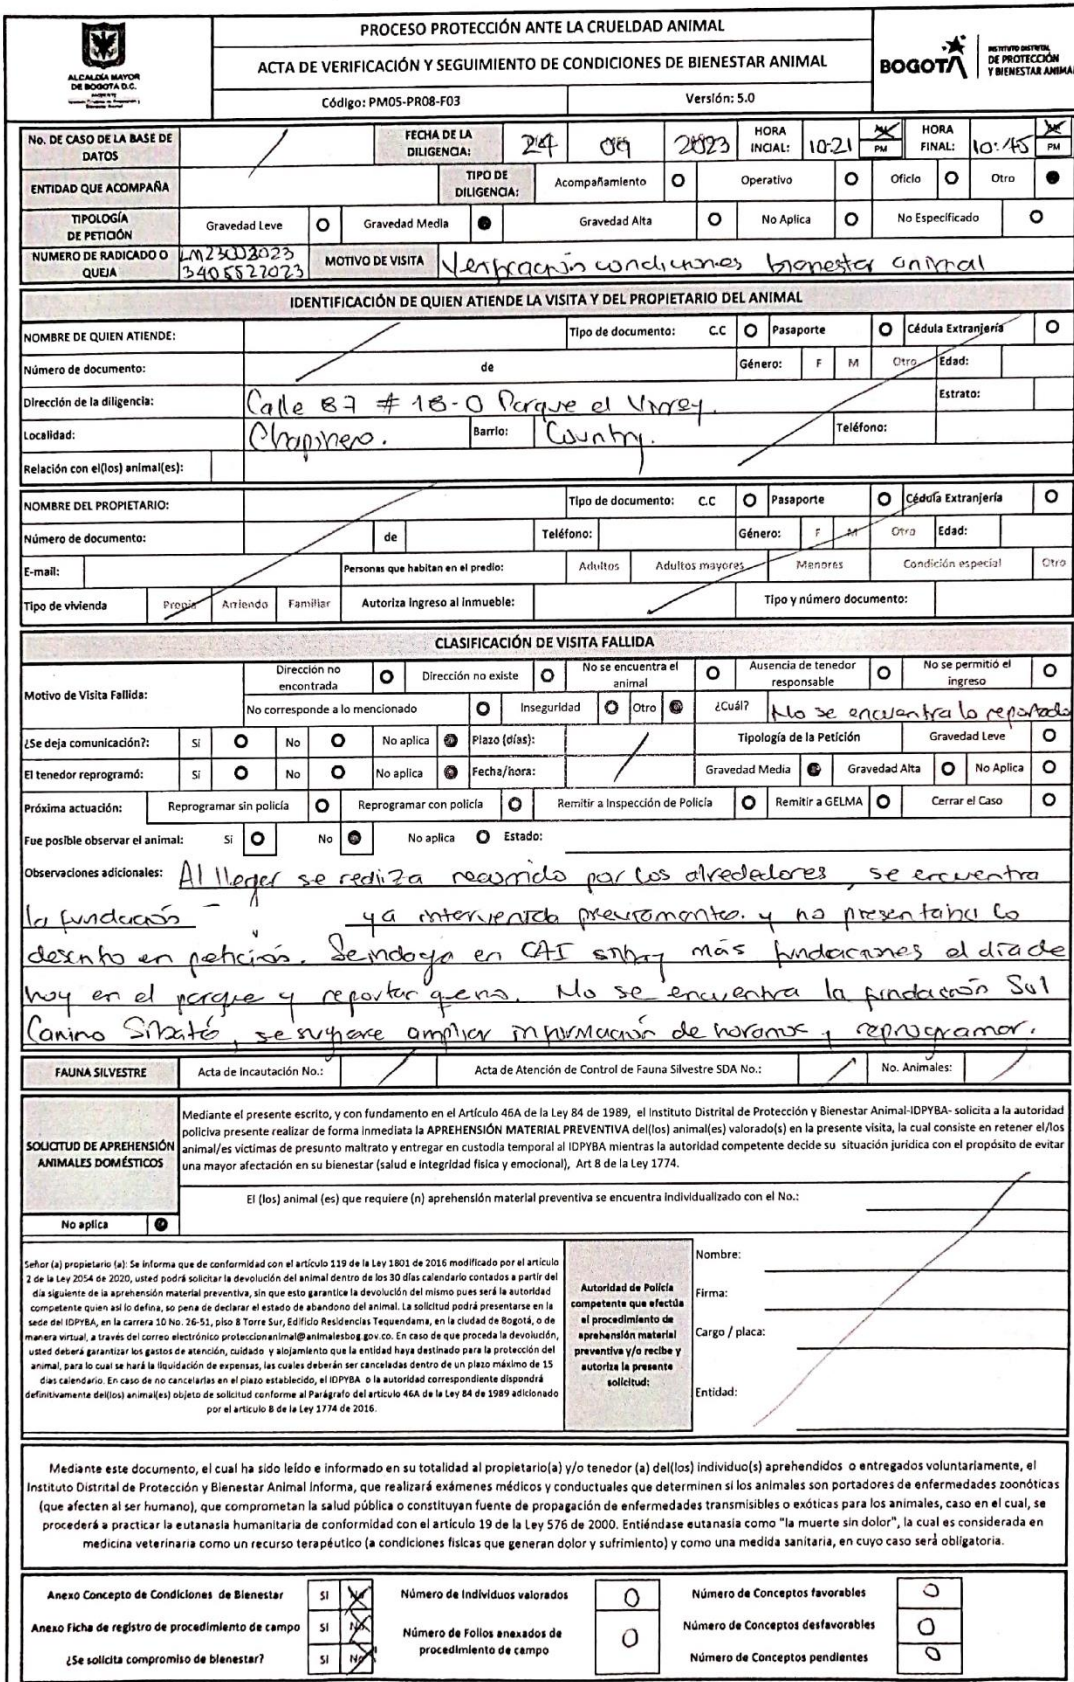 PROCESO PROTECCIÓN ANTE LA CRUELDAD ANIMAL
ALCALDÍA MAYOR
DE BOGOTÁ D.C.
ACTA DE VERIFICACIÓN Y SEGUIMIENTO DE CONDICIONES DE BIENESTAR ANIMAL
BOGOTÁ
INSTITUTO DISTRITAL
DE PROTECCIÓN
Y BIENESTAR ANIMAL
Código: PM05-PR08-F03 Versión: 5.0
No. DE CASO DE LA BASE DE DATOS FECHA DE LA DILIGENCIA: 09 2023 HORA INCIAL: 10:21 PM HORA FINAL: 10:45 PM
ENTIDAD QUE ACOMPAÑA TIPO DE DILIGENCIA: Acompañamiento Operativo Oficio Otro
TIPOLOGÍA DE PETICIÓN Gravedad Leve Gravedad Media Gravedad Alta No Aplica No Especificado
NUMERO DE RADICADO O QUEJA 3405522023 MOTIVO DE VISITA Verificación condiciones bienestar animal
IDENTIFICACIÓN DE QUIEN ATIENDE LA VISITA Y DEL PROPIETARIO DEL ANIMAL
NOMBRE DE QUIEN ATIENDE: Tipo de documento: C.C Pasaporte Cédula Extranjería
Número de documento: de Género: F M Otro Edad:
Dirección de la diligencia: Calle 87 # 18-0 Parque el Virrey. Estrato:
Localidad: Chapinero. Barrio: Country. Teléfono:
Relación con el(los) animal(es):
NOMBRE DEL PROPIETARIO: Tipo de documento: C.C Pasaporte Cédula Extranjería
Número de documento: de Teléfono: Género: F M Otro Edad:
E-mail: Personas que habitan en el predio: Adultos Adultos mayores Menores Condición especial Otro
Tipo de vivienda Propia Arriendo Familiar Autoriza ingreso al inmueble: Tipo y número documento:
CLASIFICACIÓN DE VISITA FALLIDA
Motivo de Visita Fallida: Dirección no encontrada Dirección no existe No se encuentra el animal Ausencia de tenedor responsable No se permitió el ingreso
No corresponde a lo mencionado Inseguridad Otro ¿Cuál? No se encuentra lo reportado
¿Se deja comunicación?: Si No No aplica Plazo (días): Tipología de la Petición Gravedad Leve
El tenedor reprogramó: Si No No aplica Fecha/hora: Gravedad Media Gravedad Alta No Aplica
Próxima actuación: Reprogramar sin policía Reprogramar con policía Remitir a Inspección de Policía Remitir a GELMA Cerrar el Caso
Fue posible observar el animal: Si No No aplica Estado:
Observaciones adicionales: Al llegar se realiza recorrido por los alrededores, se encuentra
la fundación ya intervenida previamente. y no presentaba lo
descrito en petición. Se indaga en CAI si hay más fundaciones el día de
hoy en el parque y reportan que no. No se encuentra la fundación Sol
Canino Sibaté, se sugiere ampliar información de horarios y reprogramar.
FAUNA SILVESTRE Acta de Incautación No.: Acta de Atención de Control de Fauna Silvestre SDA No.: No. Animales:
SOLICITUD DE APREHENSIÓN ANIMALES DOMÉSTICOS
No aplica
Mediante el presente escrito, y con fundamento en el Artículo 46A de la Ley 84 de 1989, el Instituto Distrital de Protección y Bienestar Animal-IDPYBA- solicita a la autoridad
policiva presente realizar de forma inmediata la APREHENSIÓN MATERIAL PREVENTIVA del(los) animal(es) valorado(s) en la presente visita, la cual consiste en retener el/los
animal/es victimas de presunto maltrato y entregar en custodia temporal al IDPYBA mientras la autoridad competente decide su situación jurídica con el propósito de evitar
una mayor afectación en su bienestar (salud e integridad física y emocional), Art 8 de la Ley 1774.
El (los) animal (es) que requiere (n) aprehensión material preventiva se encuentra individualizado con el No.:
Señor (a) propietario (a): Se informa que de conformidad con el artículo 119 de la Ley 1801 de 2016 modificado por el artículo
2 de la Ley 2054 de 2020, usted podrá solicitar la devolución del animal dentro de los 30 días calendario contados a partir del
día siguiente de la aprehensión material preventiva, sin que esto garantice la devolución del mismo pues será la autoridad
competente quien así lo defina, so pena de declarar el estado de abandono del animal. La solicitud podrá presentarse en la
sede del IDPYBA, en la carrera 10 No. 26-51, piso 8 Torre Sur, Edificio Residencias Tequendama, en la ciudad de Bogotá, o de
manera virtual, a través del correo electrónico proteccionanimal@animalesbog.gov.co. En caso de que proceda la devolución,
usted deberá garantizar los gastos de atención, cuidado y alojamiento que la entidad haya destinado para la protección del
animal, para lo cual se hará la liquidación de expensas, las cuales deberán ser canceladas dentro de un plazo máximo de 15
días calendario. En caso de no cancelarlas en el plazo establecido, el IDPYBA o la autoridad correspondiente dispondrá
definitivamente del(los) animal(es) objeto de solicitud conforme al Parágrafo del artículo 46A de la Ley 84 de 1989 adicionado
por el artículo 8 de la Ley 1774 de 2016.
Autoridad de Policía
competente que efectúa
el procedimiento de
aprehensión material
preventiva y/o recibe y
autoriza la presente
solicitud:
Nombre:
Firma:
Cargo / placa:
Entidad:
Mediante este documento, el cual ha sido leído e informado en su totalidad al propietario(a) y/o tenedor (a) del(los) individuo(s) aprehendidos o entregados voluntariamente, el
Instituto Distrital de Protección y Bienestar Animal Informa, que realizará exámenes médicos y conductuales que determinen si los animales son portadores de enfermedades zoonóticas
(que afecten al ser humano), que comprometan la salud pública o constituyan fuente de propagación de enfermedades transmisibles o exóticas para los animales, caso en el cual, se
procederá a practicar la eutanasia humanitaria de conformidad con el artículo 19 de la Ley 576 de 2000. Entiéndase eutanasia como "la muerte sin dolor", la cual es considerada en
medicina veterinaria como un recurso terapéutico (a condiciones físicas que generan dolor y sufrimiento) y como una medida sanitaria, en cuyo caso será obligatoria.
Anexo Concepto de Condiciones de Bienestar SI No Número de Individuos valorados 0 Número de Conceptos favorables 0
Anexo Ficha de registro de procedimiento de campo SI No Número de Folios anexados de procedimiento de campo 0 Número de Conceptos desfavorables 0
¿Se solicita compromiso de bienestar? SI No Número de Conceptos pendientes 0